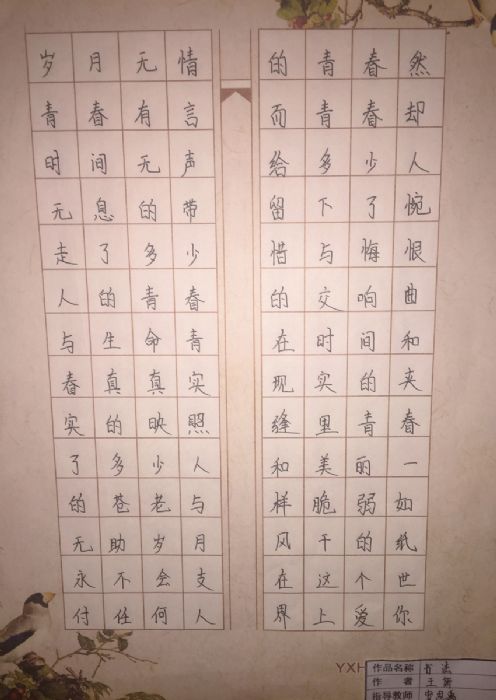 岁月无情
青春有言
时间无声
无息的带
走了多少
人的青春
与生命青
春真真实
实的映照
了多少人
的苍老与
无助岁月
永不会支
付任何人
的青春然
而青春却
给多少人
留下了惋
惜与悔恨
的交响曲
在时间和
现实的夹
缝里青春
和美丽一
样脆弱如
风干的纸
在这个世
界上爱你
YXH
作品名称
作者 王
指导教师